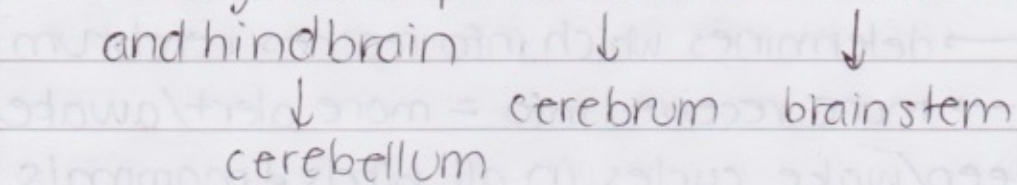 and hindbrain ↓ ↓
↓ cerebrum brainstem
cerebellum